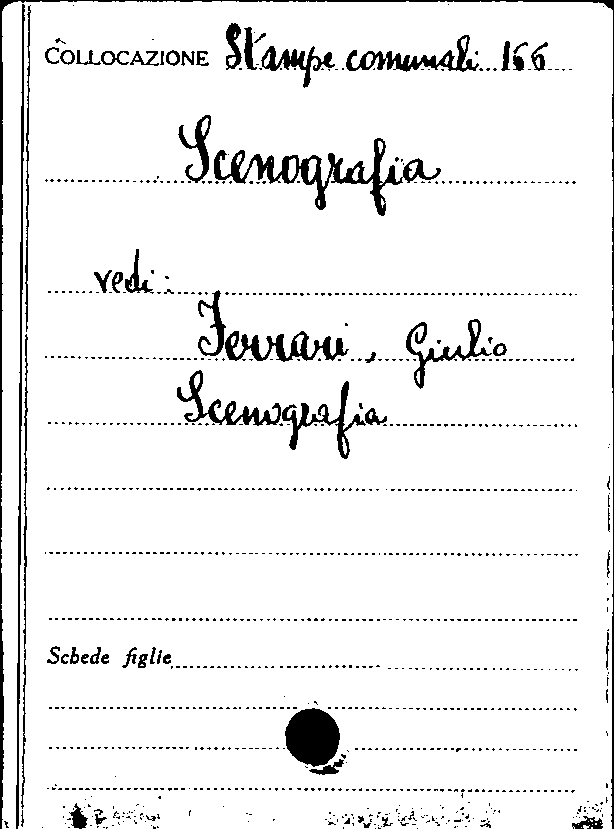 COLLOCAZIONE Stampe comunali 166
Scenografia
vedi:
Ferrari, Giulio
Scenografia
Schede figlie